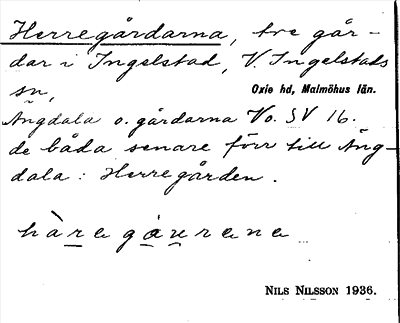 Herregårdarna, tre går-
dar i Ingelstad, V. Ingelstads
sn,
Oxie hd, Malmöhus län.
Ängdala o. gårdarna No. 5 V 16.
de båda senare förr till Äng-
dala: Herregården.
hàregáurena
NILS NILSSON 1936.